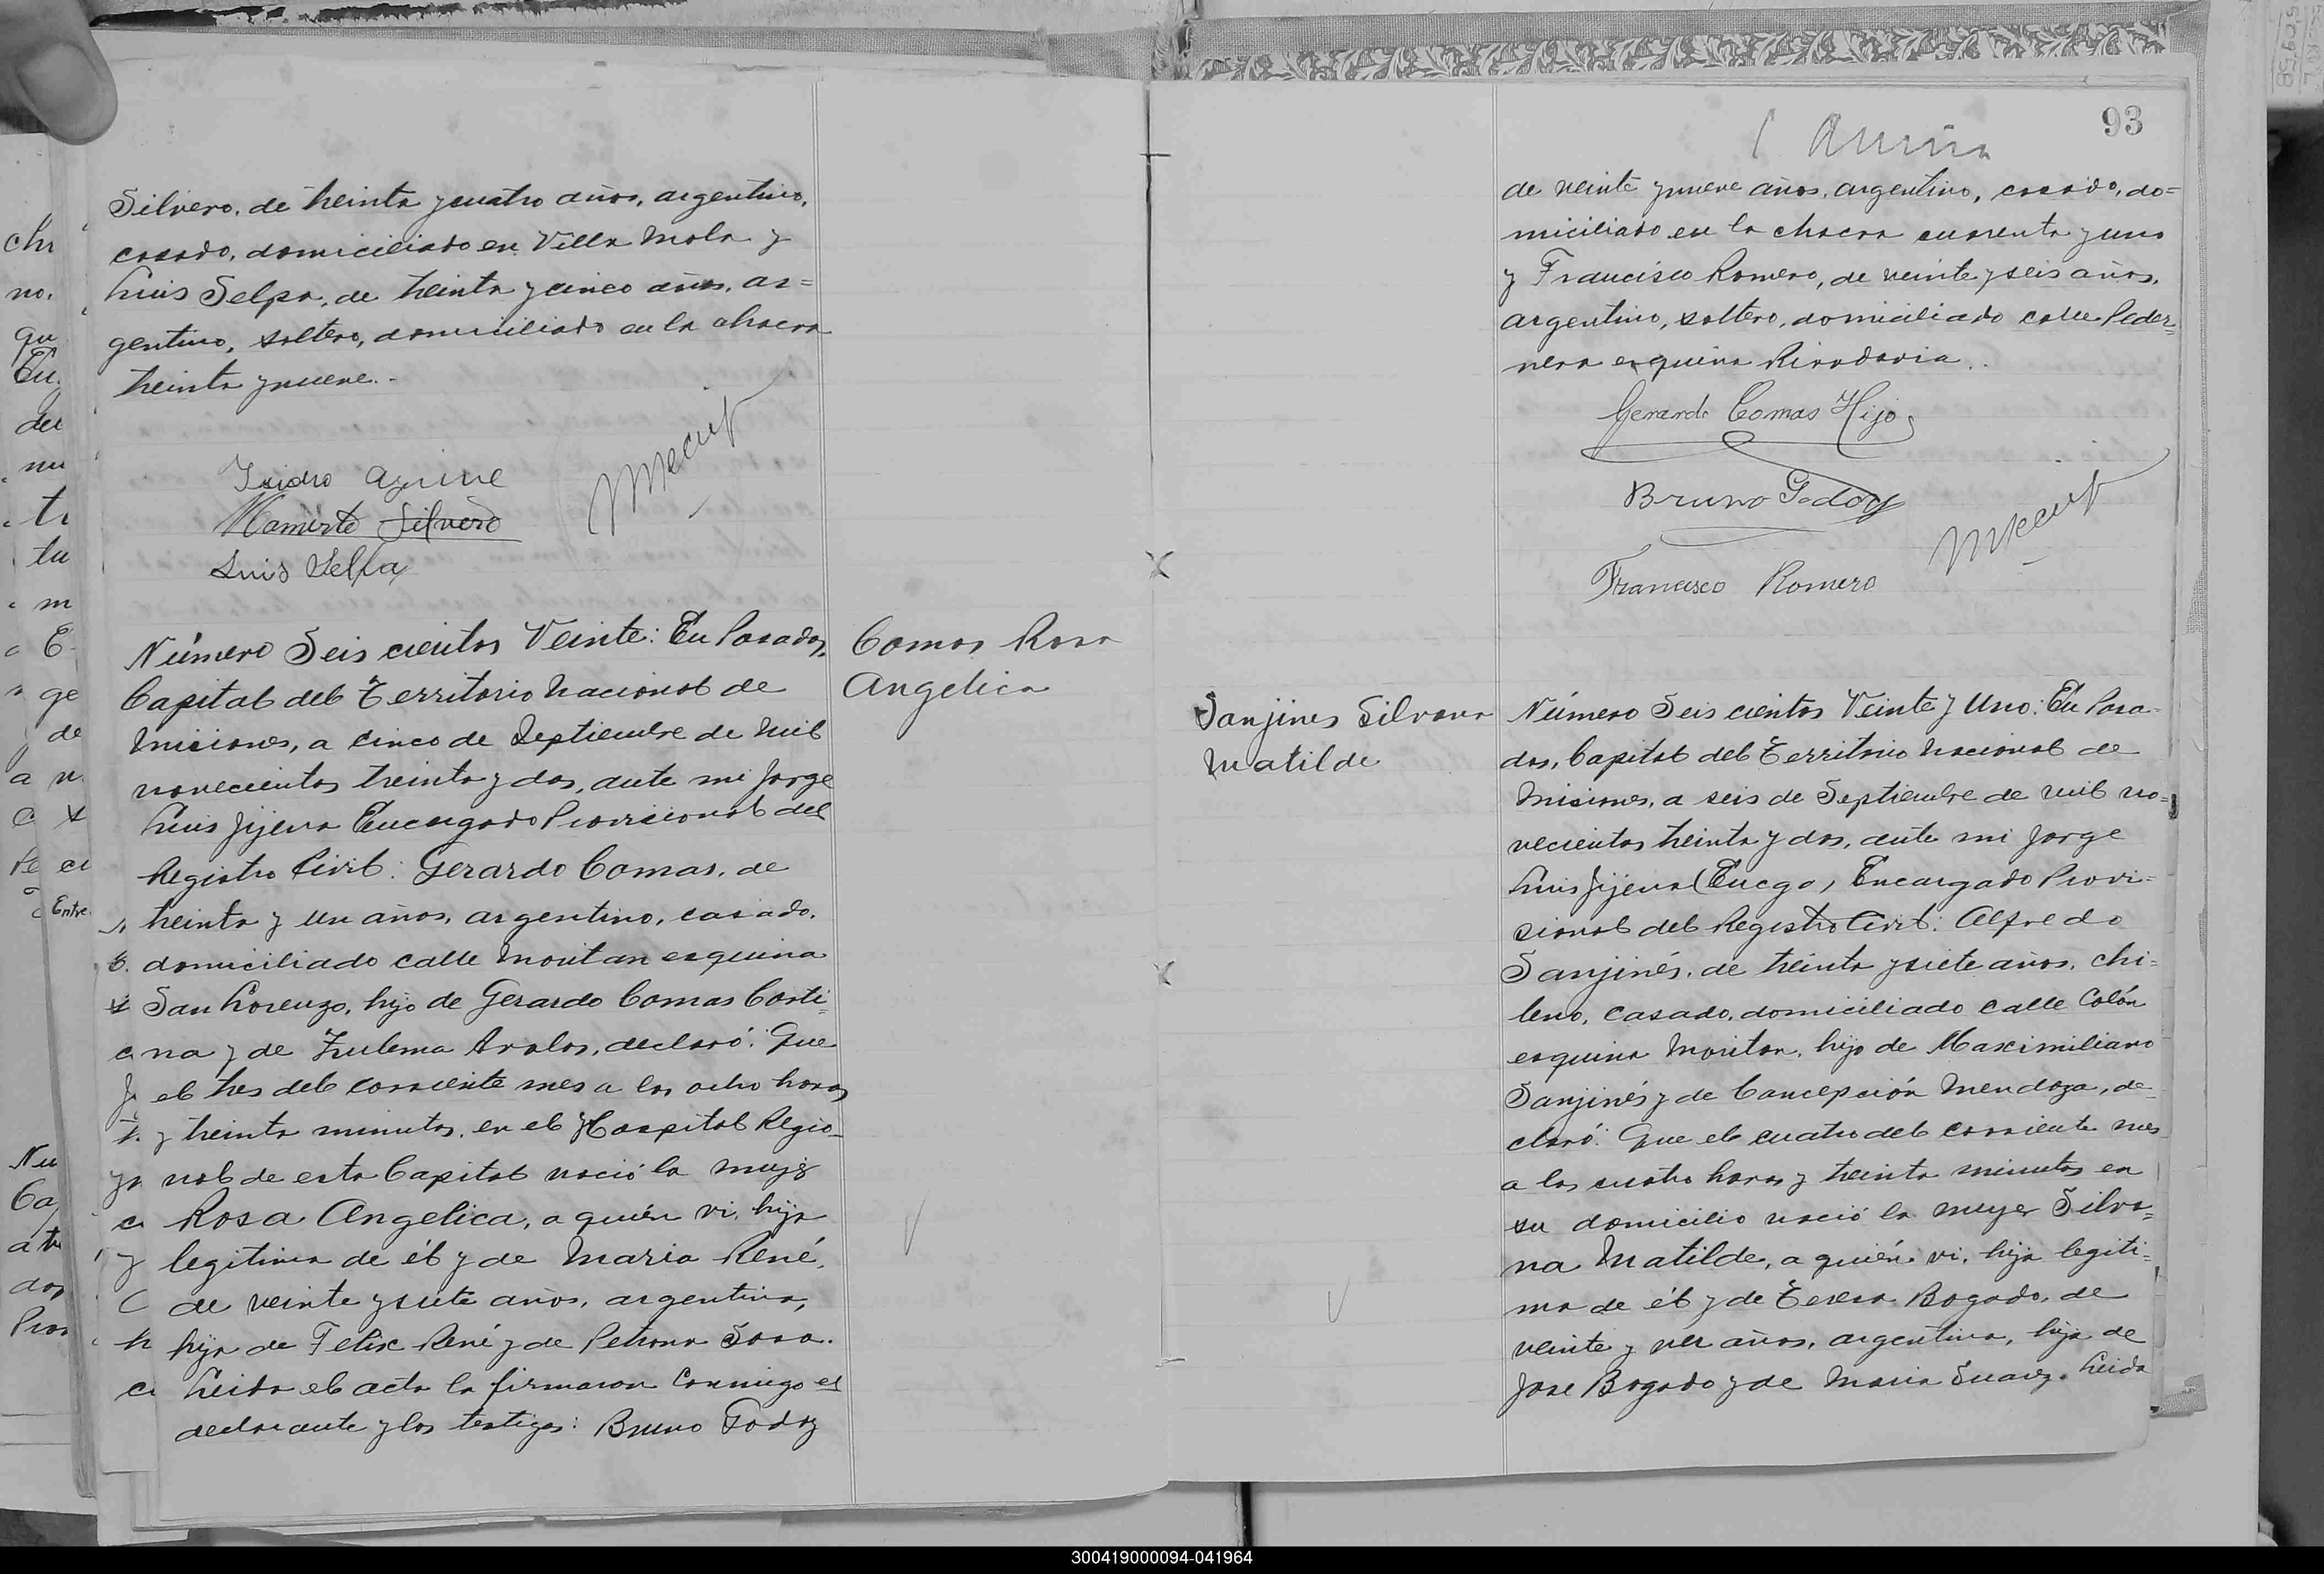 Silvero, de treinta y cuatro años, argentino,
casado, domiciliado en Villa Mola y
Luis Selpa, de treinta y cinco años, ar=
gentino, soltero, domiciliado en la chacra
treinta y nueve.-
Isidro Aguirre
Mamerto Silvero
Luis Selpa
Comas Rosa
Angelica
Número Seis cientos Veinte: En Posadas,
Capital del Territorio Nacional de
Misiones, a cinco de Septiembre de mil
novecientos treinta y dos, ante mi Jorge
Luis Jijena Encargado Provisional del
Registro Civil: Gerardo Comas, de
treinta y un años, argentino, casado,
domiciliado calle Moritan esquina
San Lorenzo, hijo de Gerardo Comas Corti=
na y de Zulema Avalos, declaró: Que
el tres del corriente mes a las ocho horas
y treinta minutos, en el Hospital Regio=
nal de esta Capital nació la mujer
Rosa Angelica, a quién vi, hija
legitima de él y de Maria René,
de veinte y siete años, argentina,
hija de Felix René y de Petrona Sosa.
Leida el acta la firmaron conmigo el
declarante y los testigos: Bruno Godoy
93
de veinte y nueve años, argentino, casado, do=
miciliado en la chacra cuarenta y uno
y Francisco Romero, de veinte y seis años,
argentino, soltero, domiciliado calle Peder=
nera esquina Rivadavia.
Gerardo Comas Hijo
Bruno Godoy
Francisco Romero
Sanjines Silvana
Matilde
Número Seis cientos Veinte y Uno: En Posa=
das, Capital del Territorio Nacional de
Misiones, a seis de Septiembre de mil no=
vecientos treinta y dos, ante mi Jorge
Luis Jijena (Encgo) Encargado Provi=
sional del Registro Civil: Alfredo
Sanjinés, de treinta y siete años, chi=
leno, casado, domiciliado calle Colón
esquina Moritan, hijo de Maximiliano
Sanjinés y de Concepción Mendoza, de=
claró: Que el cuatro del corriente mes
a las cuatro horas y treinta minutos en
su domicilio nació la mujer Silva=
na Matilde, a quién vi, hija legiti=
ma de él y de Teresa Bogado, de
veinte y años, argentina, hija de
Jose Bogado y de Maria Suarez. Leida
300419000094-041964